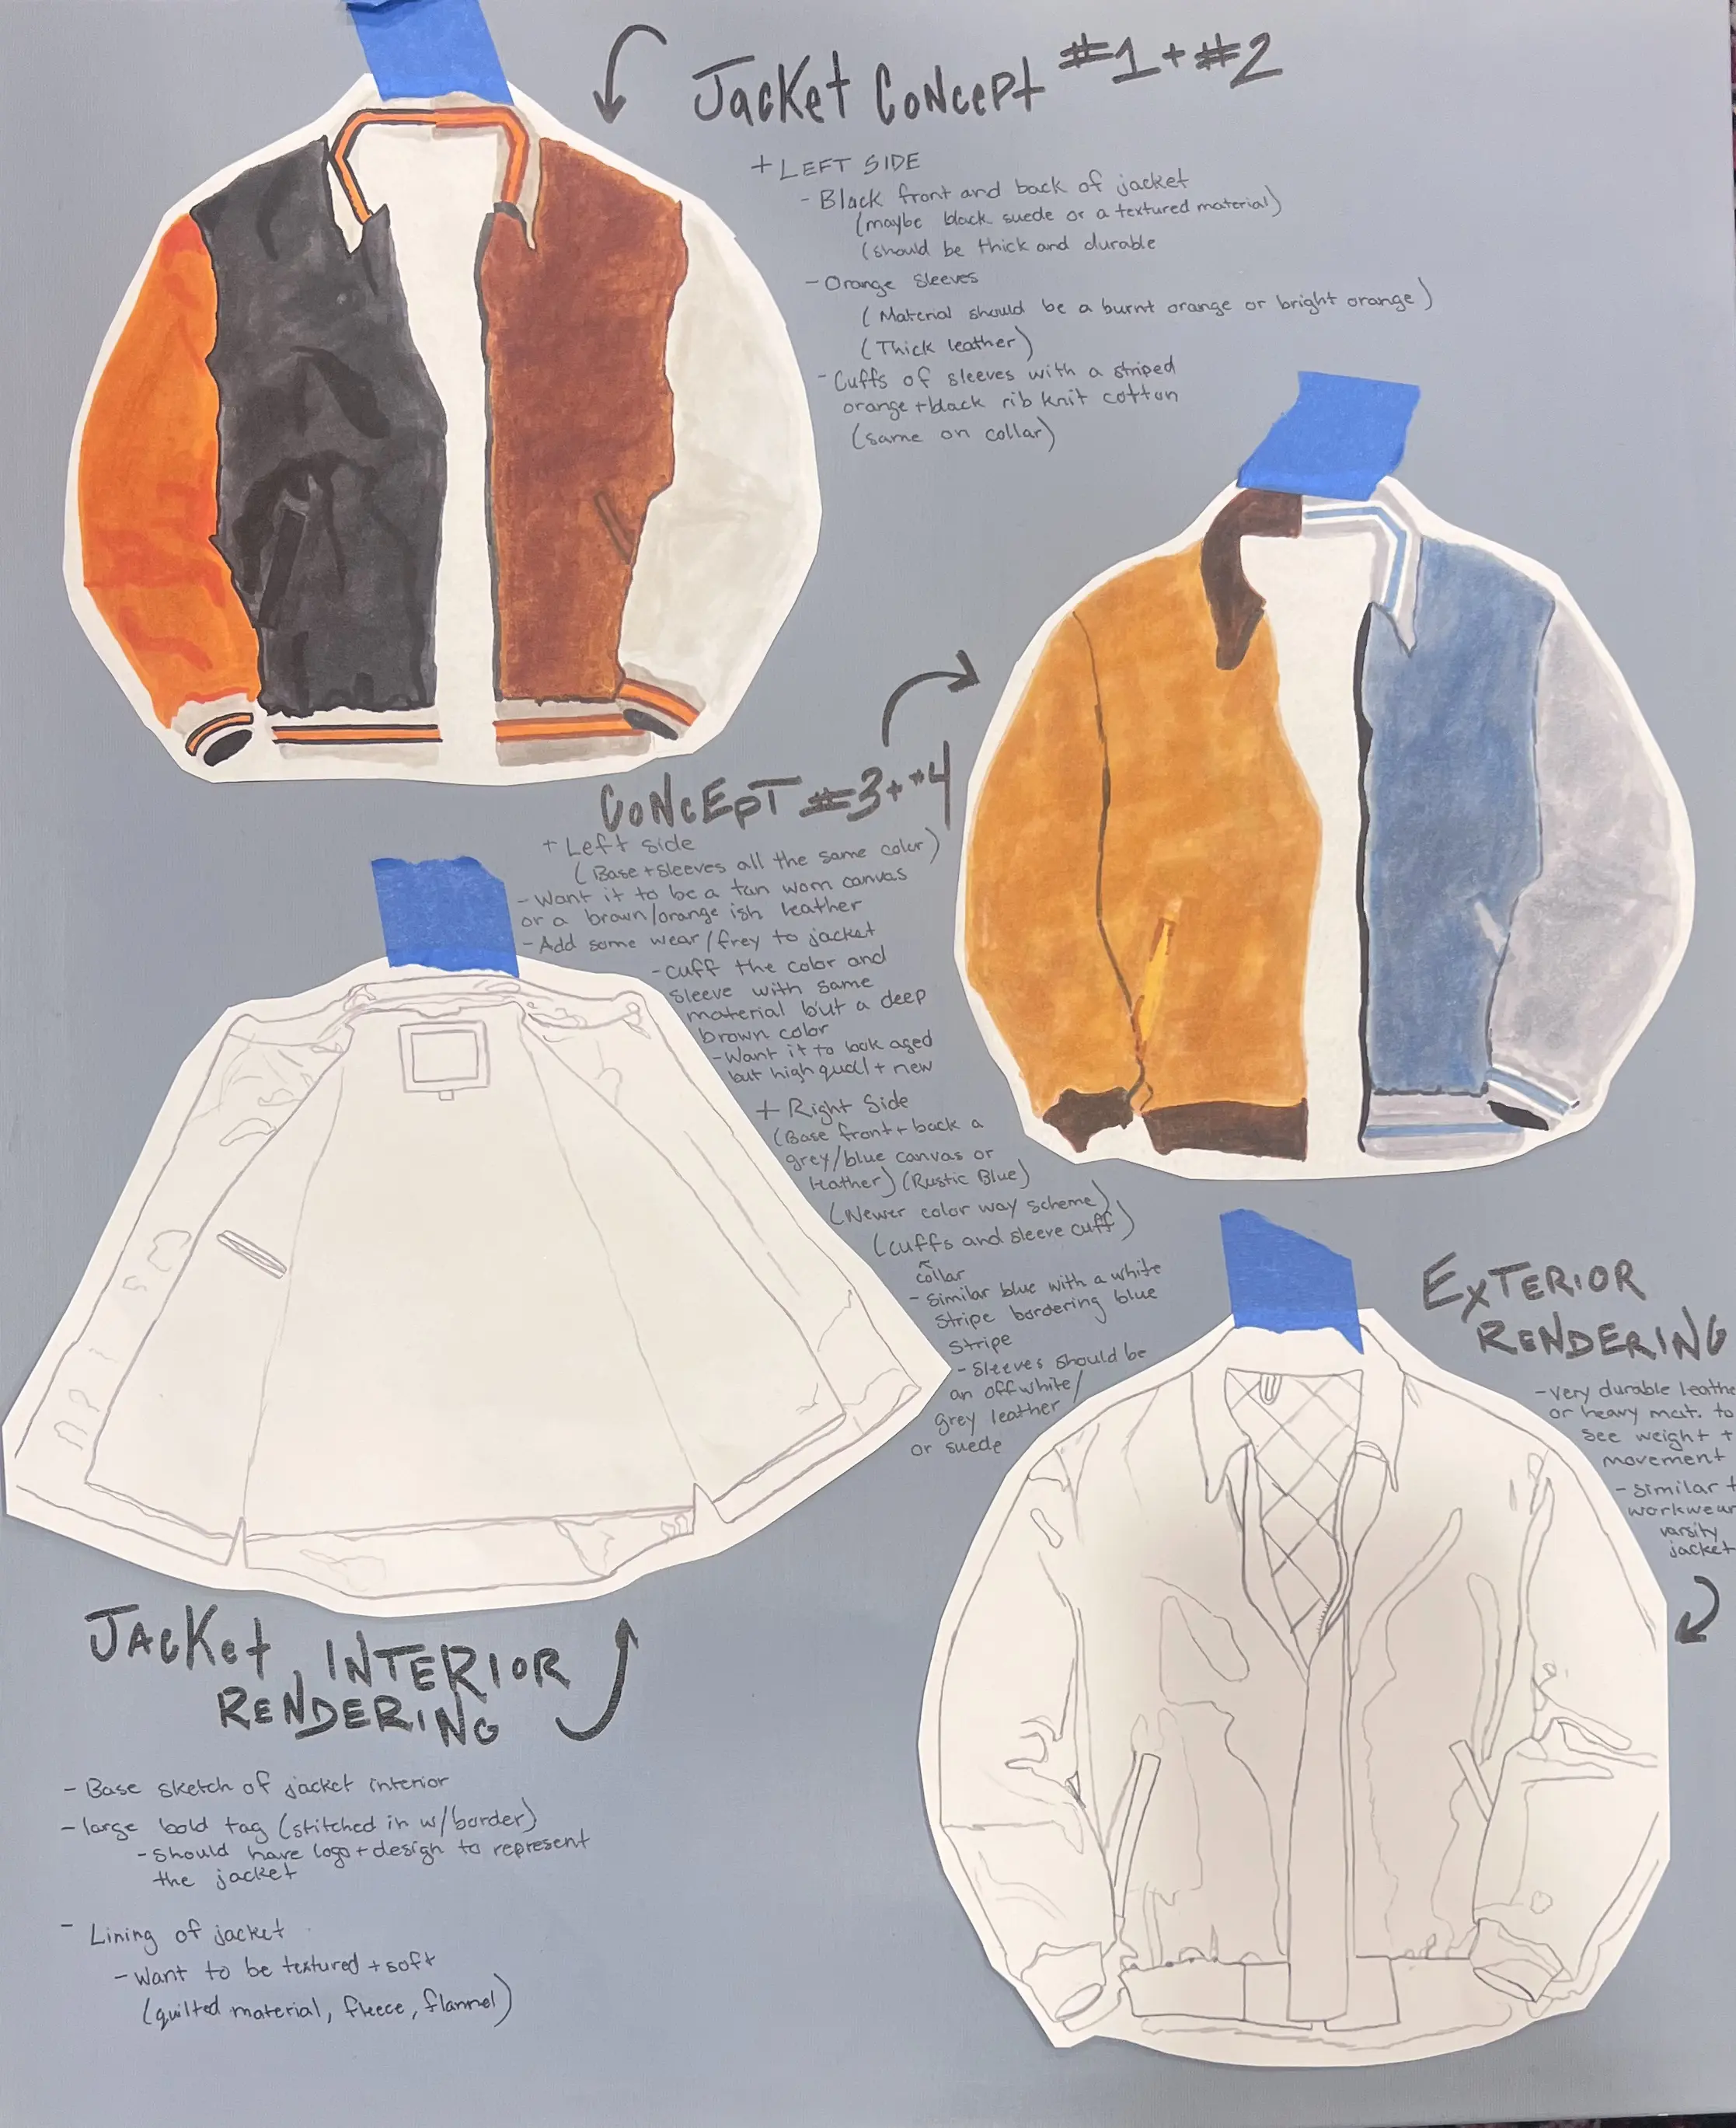 Jacket Concept #1 + #2
+ LEFT SIDE
- Black front and back of jacket
(maybe black suede or a textured material)
(should be thick and durable
- Orange sleeves
(Material should be a burnt orange or bright orange)
(Thick leather)
- Cuffs of sleeves with a striped
orange + black rib knit cotton
(same on collar)
CONCEPT #3 + #4
+ Left side
(Base + sleeves all the same color)
- Want it to be a tan worn canvas
or a brown/orange ish leather
- Add some wear/frey to jacket
- cuff the color and
sleeve with same
material but a deep
brown color
- Want it to look aged
but high qual + new
+ Right Side
(Base front + back a
grey/blue canvas or
leather) (Rustic Blue)
(Newer color way scheme)
(cuffs and sleeve cuff)
collar
- similar blue with a white
stripe bordering blue
stripe
- Sleeves should be
an offwhite/
grey leather
or suede
EXTERIOR
RENDERING
- very durable leathe
or heavy mat. to
see weight +
movement
- similar t
workwear
varsity
jacket
JACKet INTERIOR
RENDERING
- Base sketch of jacket interior
- large bold tag (stitched in w/border)
- should have logo + design to represent
the jacket
- Lining of jacket
- want to be textured + soft
(quilted material, fleece, flannel)